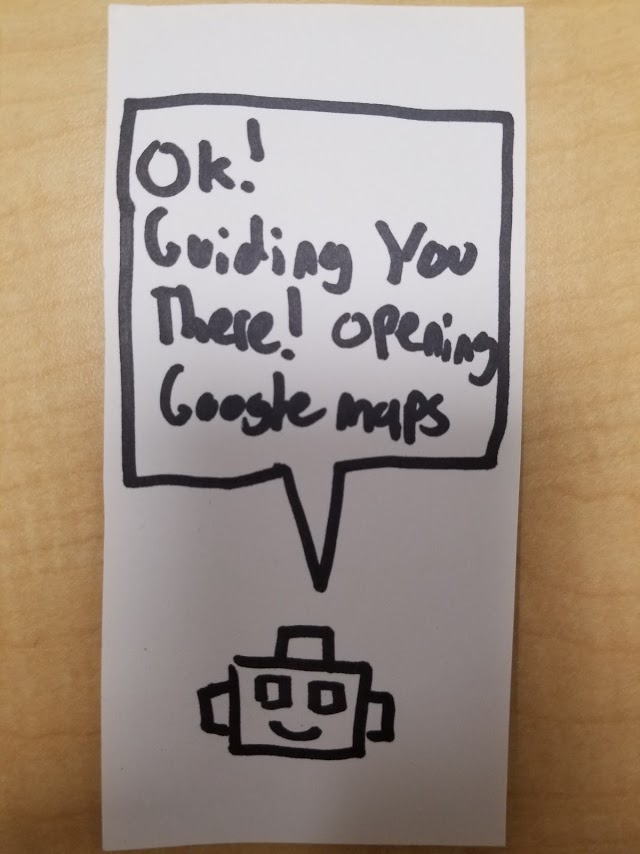 Ok!
Guiding You
There! opening
Google maps